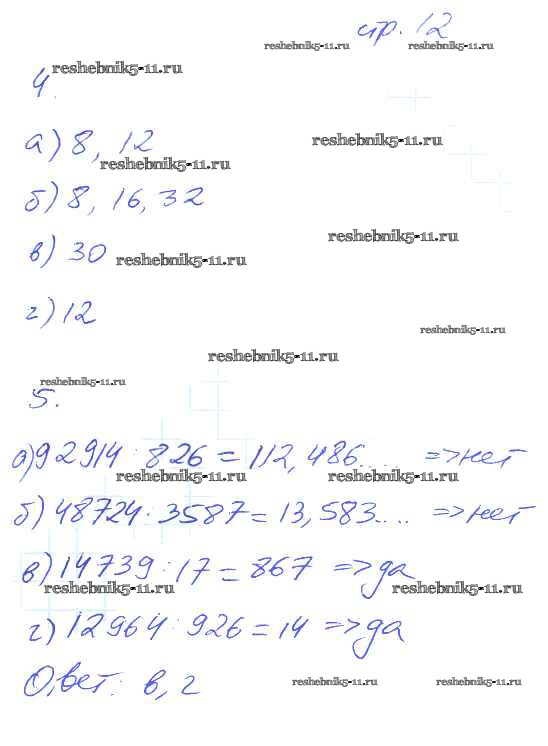 стр. 12
reshebnik5-11.ru reshebnik5-11.ru
reshebnik5-11.ru
4.
а) 8, 12 reshebnik5-11.ru
reshebnik5-11.ru
б) 8, 16, 32
reshebnik5-11.ru
в) 30 reshebnik5-11.ru
г) 12 reshebnik5-11.ru
reshebnik5-11.ru
reshebnik5-11.ru
5.
а) 92914 : 826 = 112,486.... => нет
reshebnik5-11.ru reshebnik5-11.ru
б) 48724 : 3587 = 13,583.... => нет
в) 14739 : 17 = 867 => да
reshebnik5-11.ru reshebnik5-11.ru
г) 12964 : 926 = 14 => да
Ответ: в, г reshebnik5-11.ru reshebnik5-11.ru